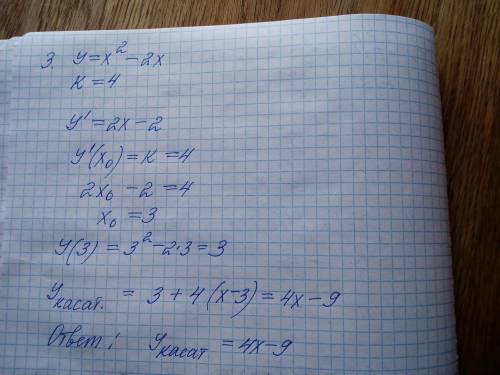 3. y = x² - 2x
K = 4
y' = 2x - 2
y'(x₀) = K = 4
2x₀ - 2 = 4
x₀ = 3
y(3) = 3² - 2·3 = 3
y касат. = 3 + 4(x-3) = 4x - 9
Ответ: y касат = 4x - 9